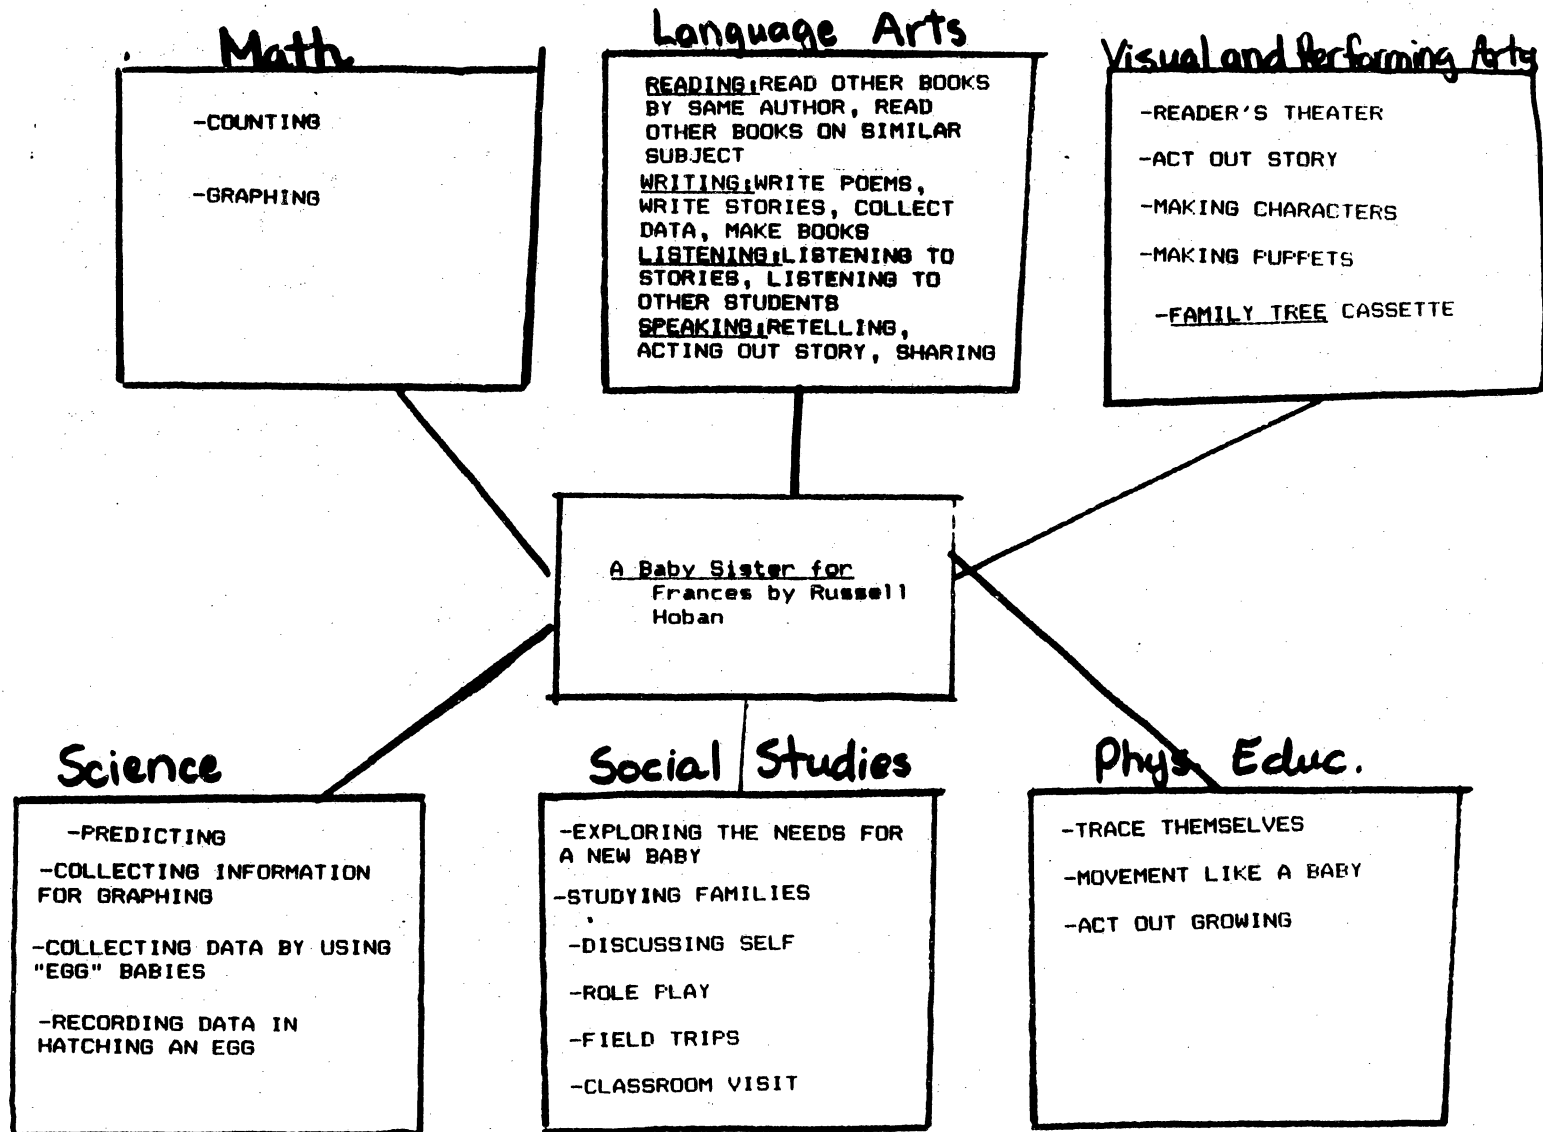 Math
-COUNTING
-GRAPHING
Language Arts
READING:READ OTHER BOOKS
BY SAME AUTHOR, READ
OTHER BOOKS ON SIMILAR
SUBJECT
WRITING:WRITE POEMS,
WRITE STORIES, COLLECT
DATA, MAKE BOOKS
LISTENING:LISTENING TO
STORIES, LISTENING TO
OTHER STUDENTS
SPEAKING:RETELLING,
ACTING OUT STORY, SHARING
Visual and Performing Arts
-READER'S THEATER
-ACT OUT STORY
-MAKING CHARACTERS
-MAKING PUPPETS
-FAMILY TREE CASSETTE
A Baby Sister for
Frances by Russell
Hoban
Science
-PREDICTING
-COLLECTING INFORMATION
FOR GRAPHING
-COLLECTING DATA BY USING
"EGG" BABIES
-RECORDING DATA IN
HATCHING AN EGG
Social Studies
-EXPLORING THE NEEDS FOR
A NEW BABY
-STUDYING FAMILIES
-DISCUSSING SELF
-ROLE PLAY
-FIELD TRIPS
-CLASSROOM VISIT
Phys. Educ.
-TRACE THEMSELVES
-MOVEMENT LIKE A BABY
-ACT OUT GROWING